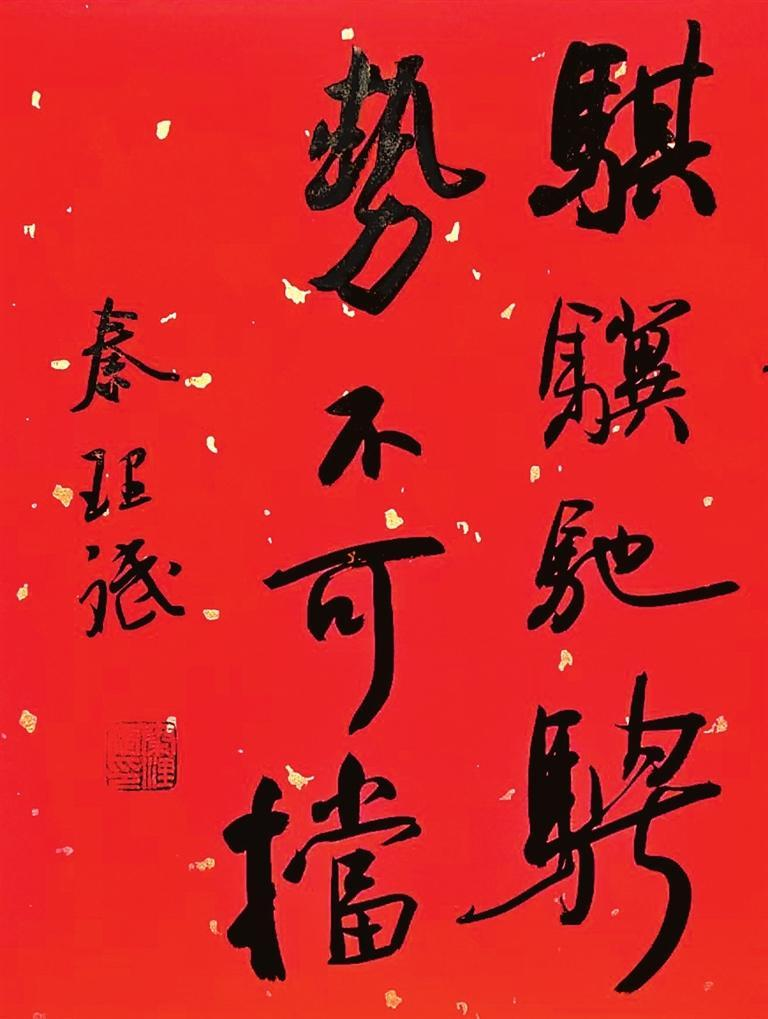 騏驥馳騁
勢不可擋
秦理斌